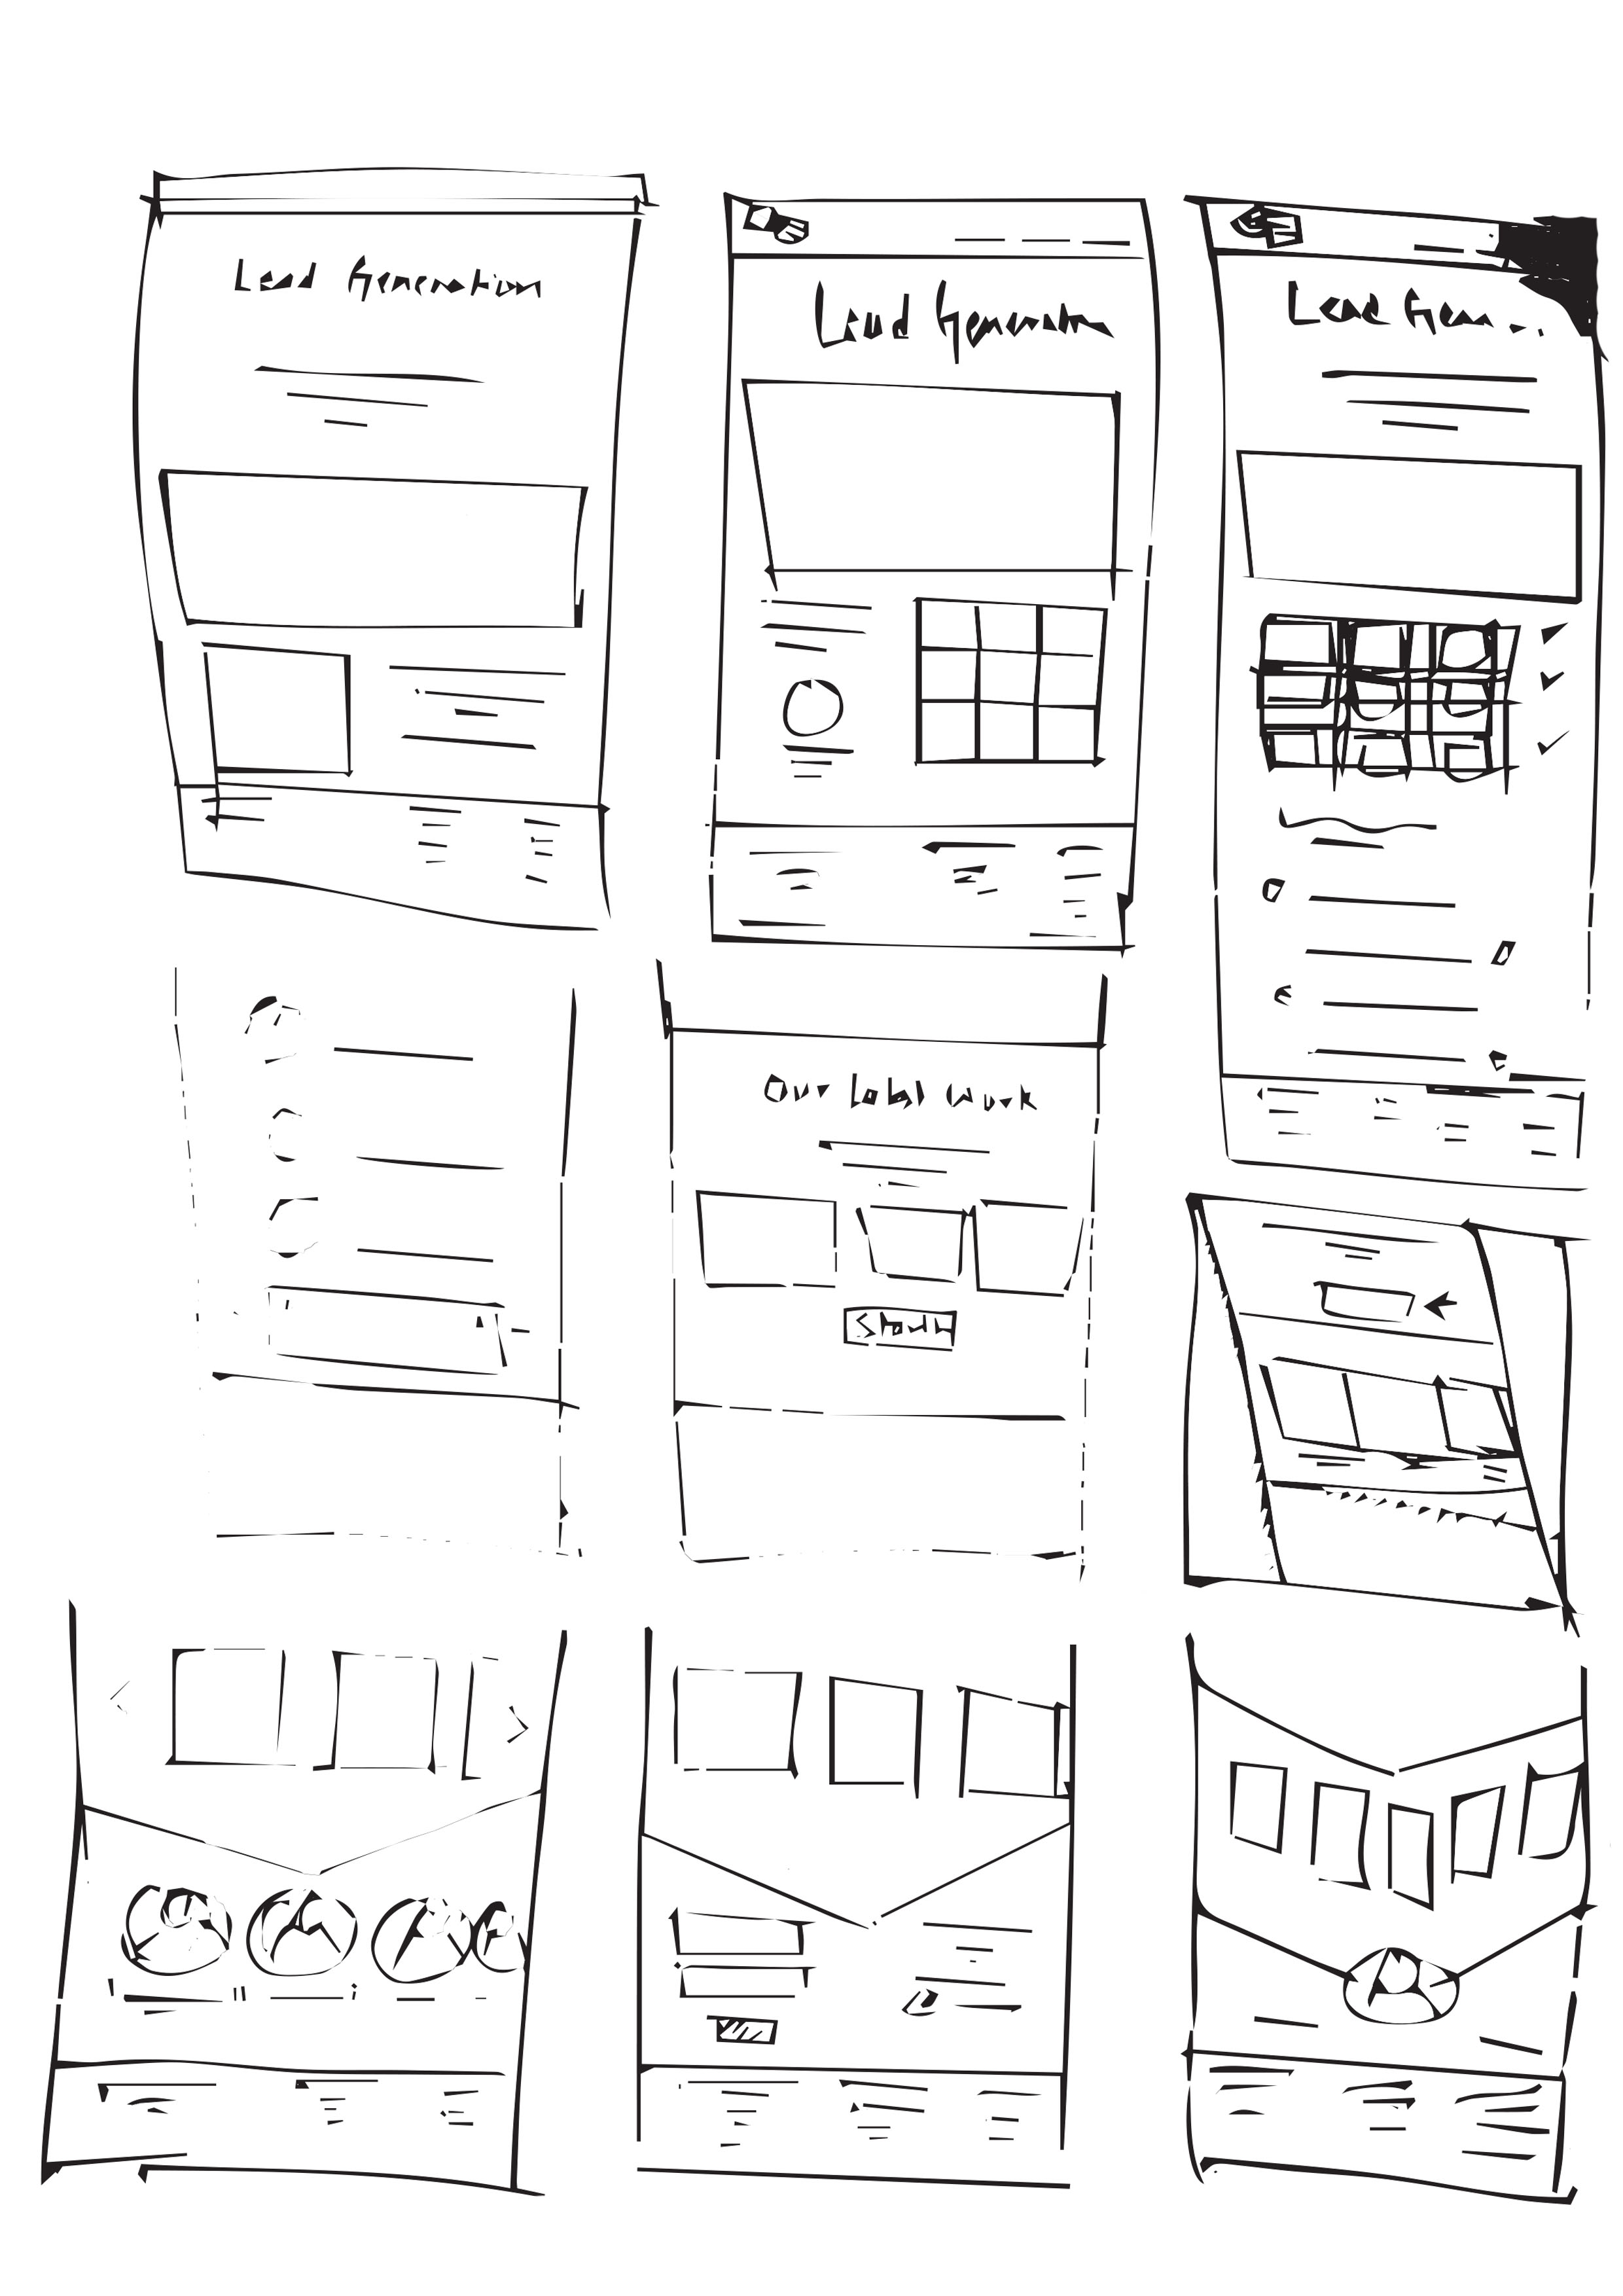 Lead Generation
Lead Generation
Lead Gen...
Our latest work